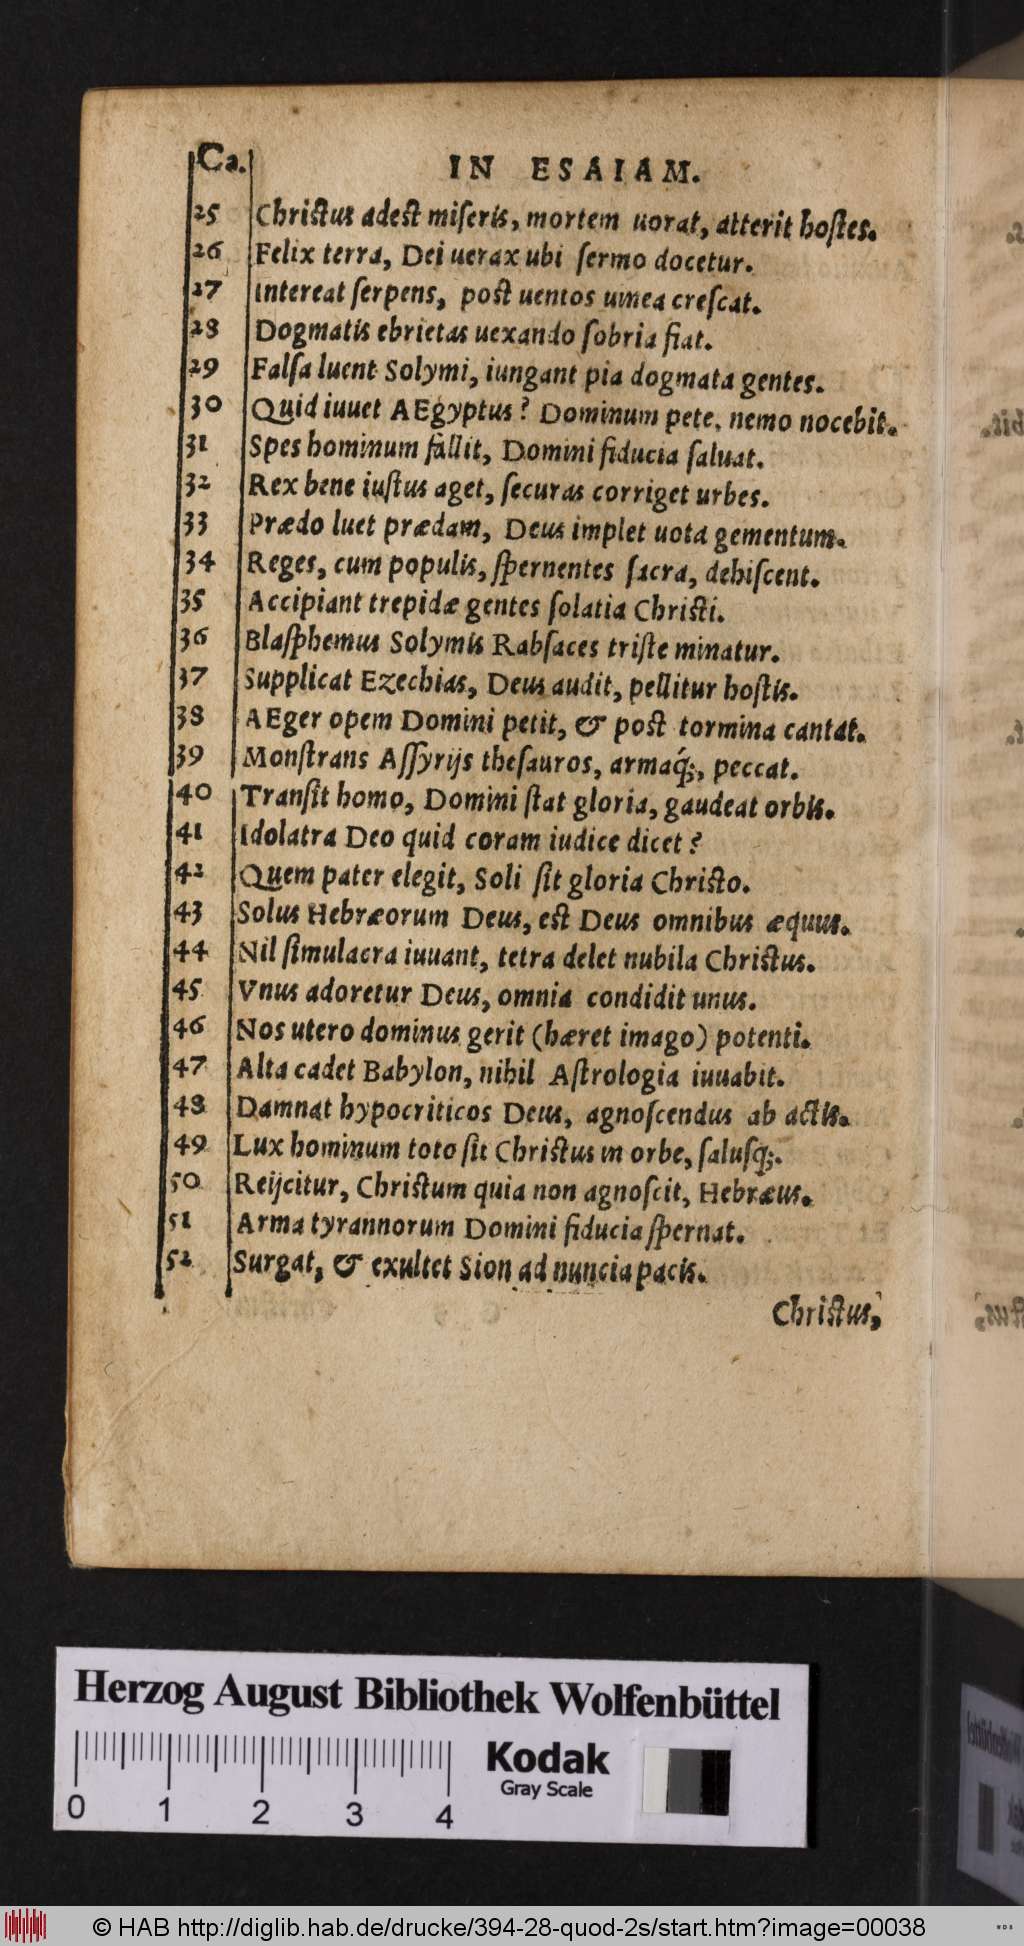 Ca. IN ESAIAM.
25 Chriſtus adeſt miſeris, mortem uorat, atterit hoſtes.
26 Felix terra, Dei uerax ubi ſermo docetur.
27 Intereat ſerpens, poſt uentos uinea creſcat.
28 Dogmatis ebrietas uexando ſobria fiat.
29 Falſa luent Solymi, iungant pia dogmata gentes.
30 Quid iuuet AEgyptus? Dominum pete, nemo nocebit.
31 Spes hominum fallit, Domini fiducia ſaluat.
32 Rex bene iuſtus aget, ſecuras corriget urbes.
33 Prædo luet prædam, Deus implet uota gementum.
34 Reges, cum populis, ſpernentes ſacra, dehiſcent.
35 Accipiant trepidæ gentes ſolatia Chriſti.
36 Blaſphemus Solymis Rabſaces triſte minatur.
37 Supplicat Ezechias, Deus audit, pellitur hoſtis.
38 AEger opem Domini petit, & poſt tormina cantat.
39 Monſtrans Aſſyrijs theſauros, armaq́;, peccat.
40 Tranſit homo, Domini ſtat gloria, gaudeat orbis.
41 Idolatra Deo quid coram iudice dicet?
42 Quem pater elegit, Soli ſit gloria Chriſto.
43 Solus Hebræorum Deus, eſt Deus omnibus æquus.
44 Nil ſimulacra iuuant, tetra delet nubila Chriſtus.
45 Vnus adoretur Deus, omnia condidit unus.
46 Nos utero dominus gerit (hæret imago) potenti.
47 Alta cadet Babylon, nihil Aſtrologia iuuabit.
48 Damnat hypocriticos Deus, agnoſcendus ab actis.
49 Lux hominum toto ſit Chriſtus in orbe, ſaluſq́;.
50 Reijcitur, Chriſtum quia non agnoſcit, Hebræus.
51 Arma tyrannorum Domini fiducia ſpernat.
52 Surgat, & exultet Sion ad nuncia pacis.
Chriſtus,
Herzog August Bibliothek Wolfenbüttel
Kodak
Gray Scale
0 1 2 3 4
© HAB http://diglib.hab.de/drucke/394-28-quod-2s/start.htm?image=00038